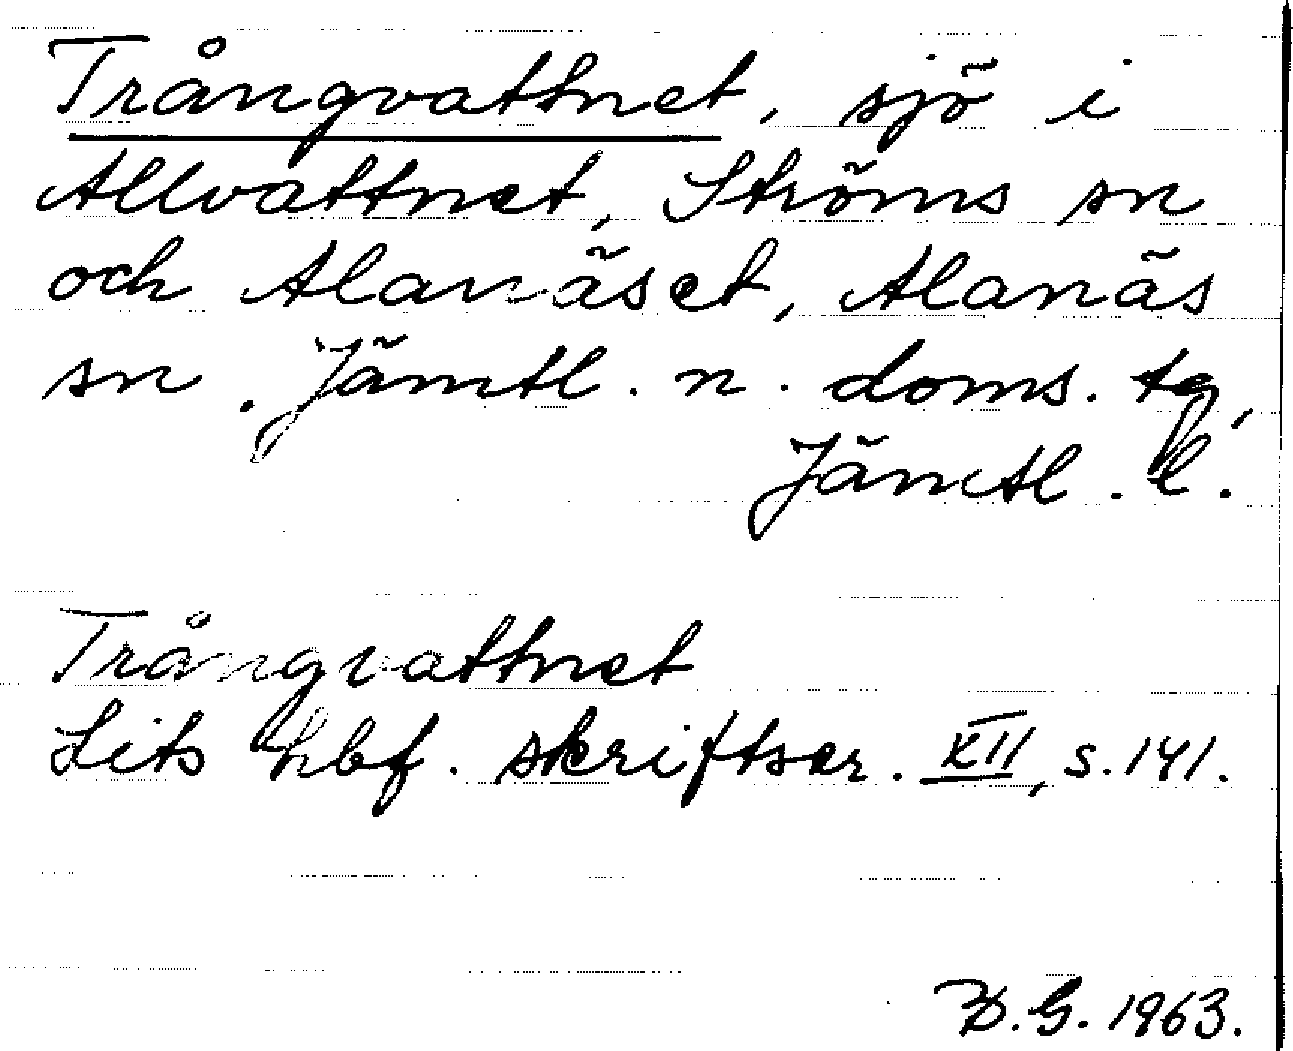 Trångvattnet, sjö i
Allvattnet, Ströms sn
och Alanäset, Alanäs
sn. Jämtl. n. doms. tg,
Jämtl. l.
Trångvattnet
Lits hbf. skriftser. XII, s. 141.
G. 1963.